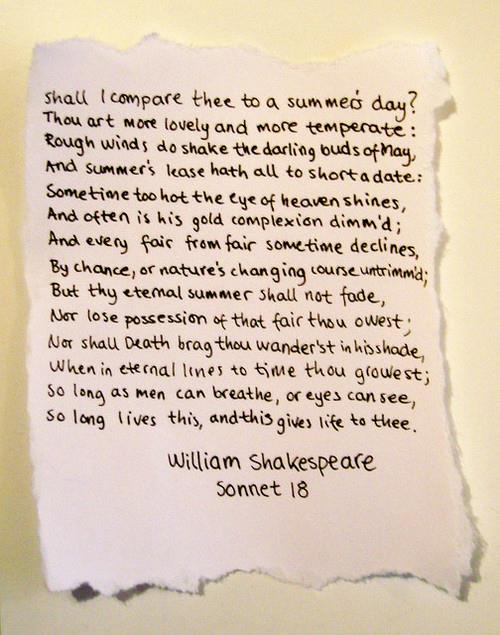 Shall I compare thee to a summer's day?
Thou art more lovely and more temperate:
Rough winds do shake the darling buds of May,
And summer's lease hath all to short a date:
Sometime too hot the eye of heaven shines,
And often is his gold complexion dimm'd;
And every fair from fair sometime declines,
By chance, or nature's changing course untrimm'd;
But thy eternal summer shall not fade,
Nor lose possession of that fair thou owest;
Nor shall Death brag thou wander'st in his shade,
When in eternal lines to time thou growest;
So long as men can breathe, or eyes can see,
So long lives this, and this gives life to thee.
William Shakespeare
Sonnet 18